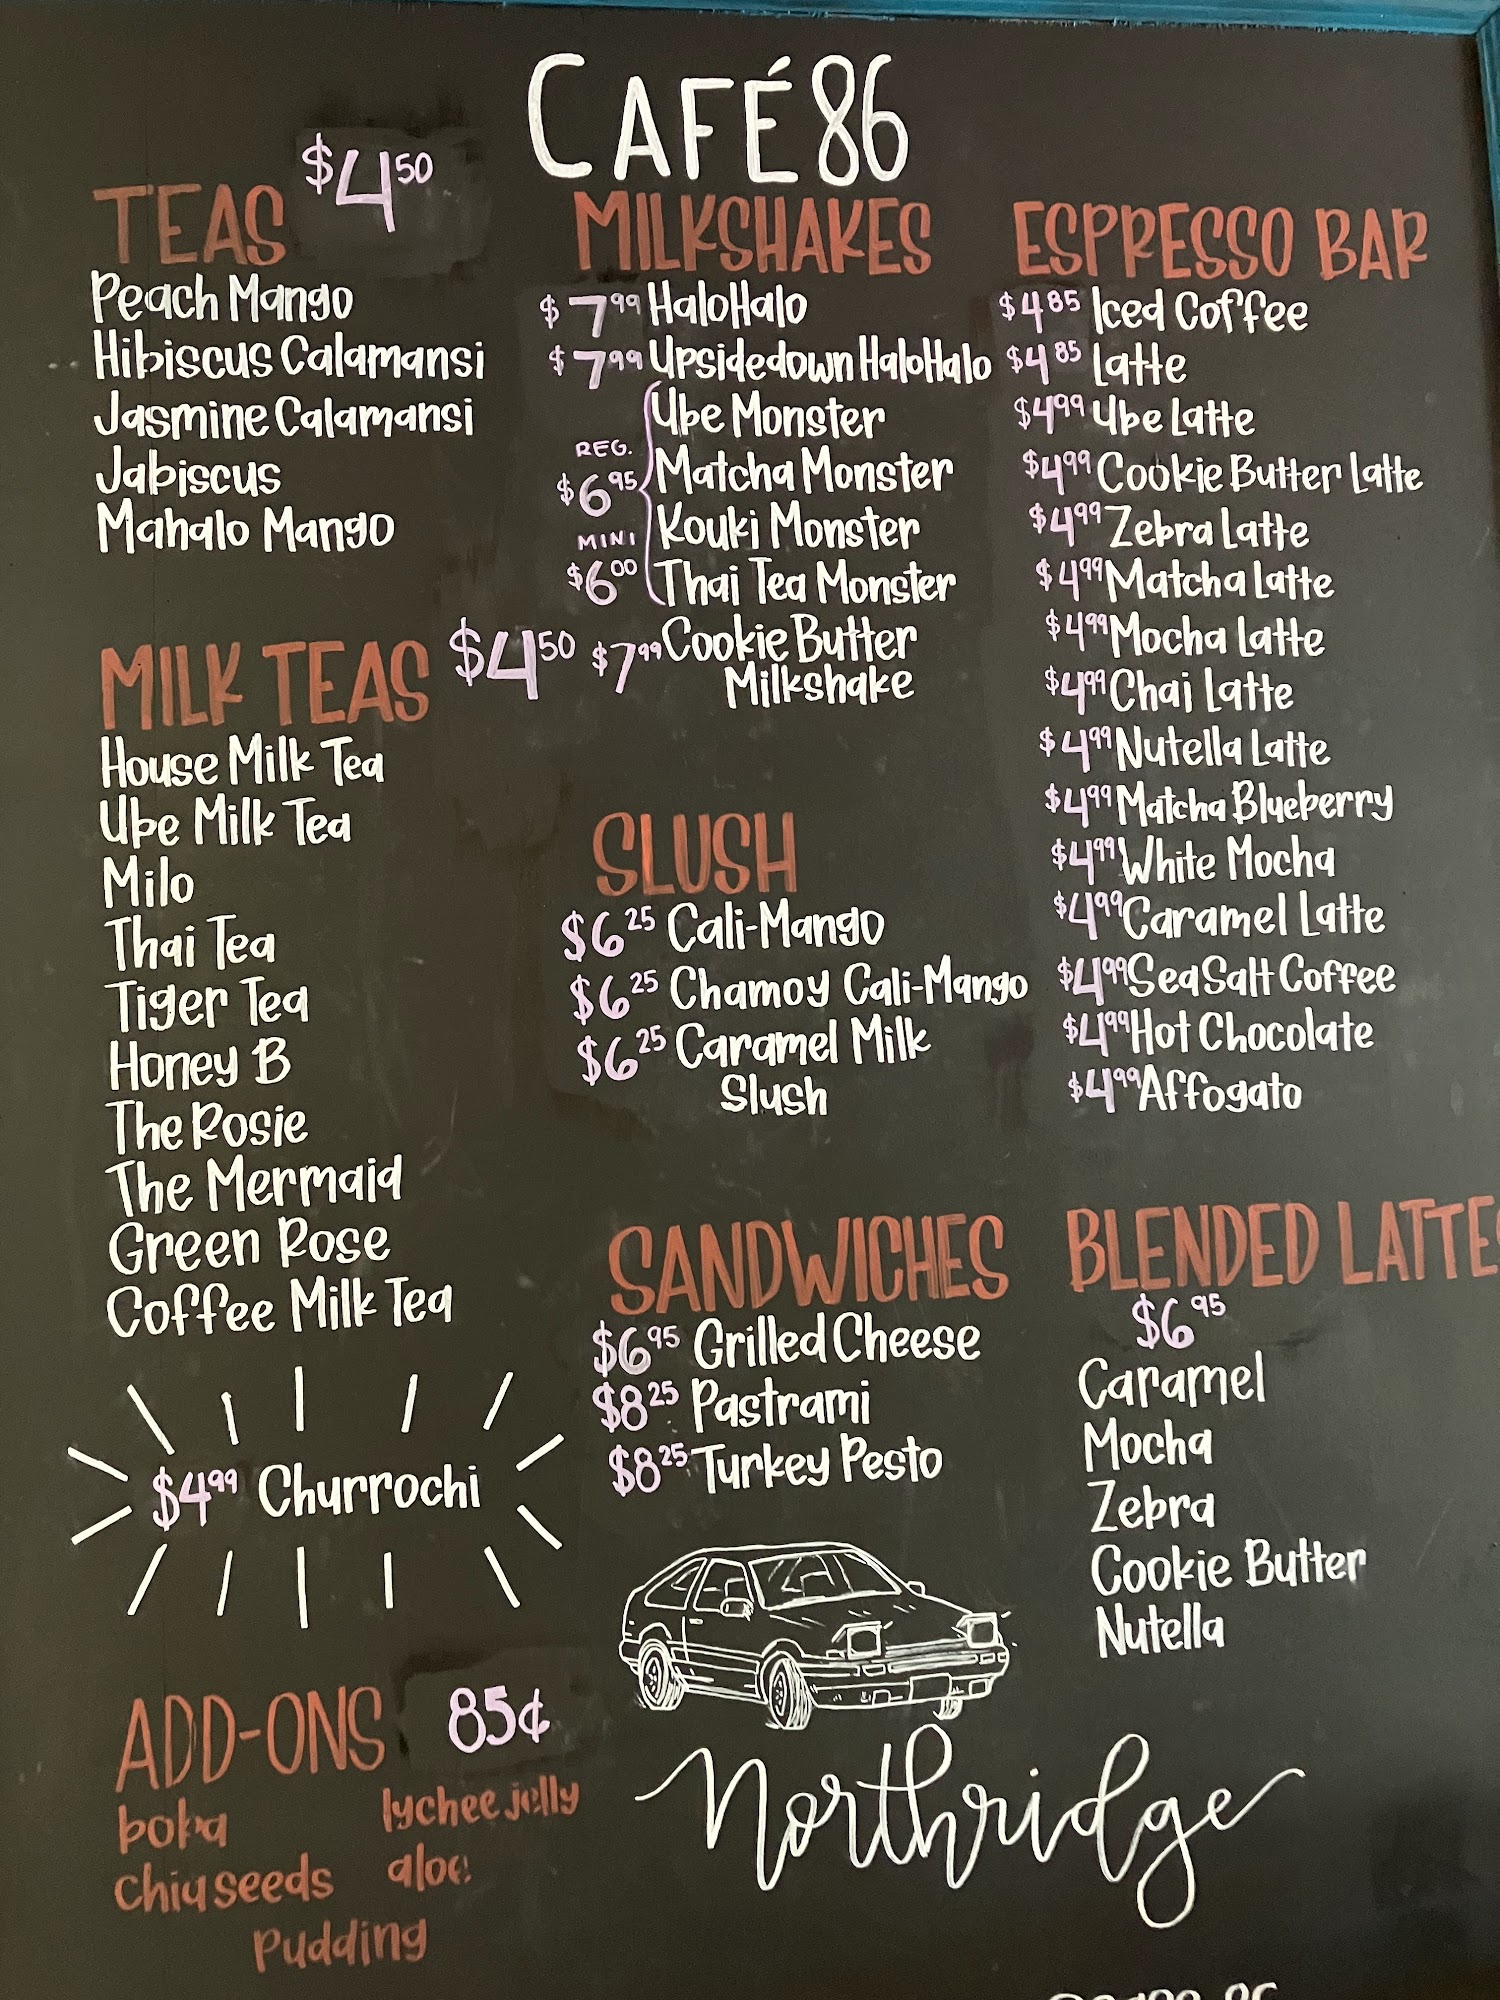 CAFÉ 86
TEAS $4.50
Peach Mango
Hibiscus Calamansi
Jasmine Calamansi
Jabiscus
Mahalo Mango
MILK TEAS $4.50
House Milk Tea
Ube Milk Tea
Milo
Thai Tea
Tiger Tea
Honey B
The Rosie
The Mermaid
Green Rose
Coffee Milk Tea
$4.99 Churrochi
ADD-ONS 85¢
boba lychee jelly
chia seeds aloe
pudding
MILKSHAKES
$7.99 HaloHalo
$7.99 Upsidedown HaloHalo
REG. $6.95
MINI $6.00
Ube Monster
Matcha Monster
Kouki Monster
Thai Tea Monster
$7.99 Cookie Butter
Milkshake
SLUSH
$6.25 Cali-Mango
$6.25 Chamoy Cali-Mango
$6.25 Caramel Milk
Slush
SANDWICHES
$6.95 Grilled Cheese
$8.25 Pastrami
$8.25 Turkey Pesto
Northridge
ESPRESSO BAR
$4.85 Iced Coffee
$4.85 Latte
$4.99 Ube Latte
$4.99 Cookie Butter Latte
$4.99 Zebra Latte
$4.99 Matcha Latte
$4.99 Mocha Latte
$4.99 Chai Latte
$4.99 Nutella Latte
$4.99 Matcha Blueberry
$4.99 White Mocha
$4.99 Caramel Latte
$4.99 Sea Salt Coffee
$4.99 Hot Chocolate
$4.99 Affogato
BLENDED LATTES
$6.95
Caramel
Mocha
Zebra
Cookie Butter
Nutella